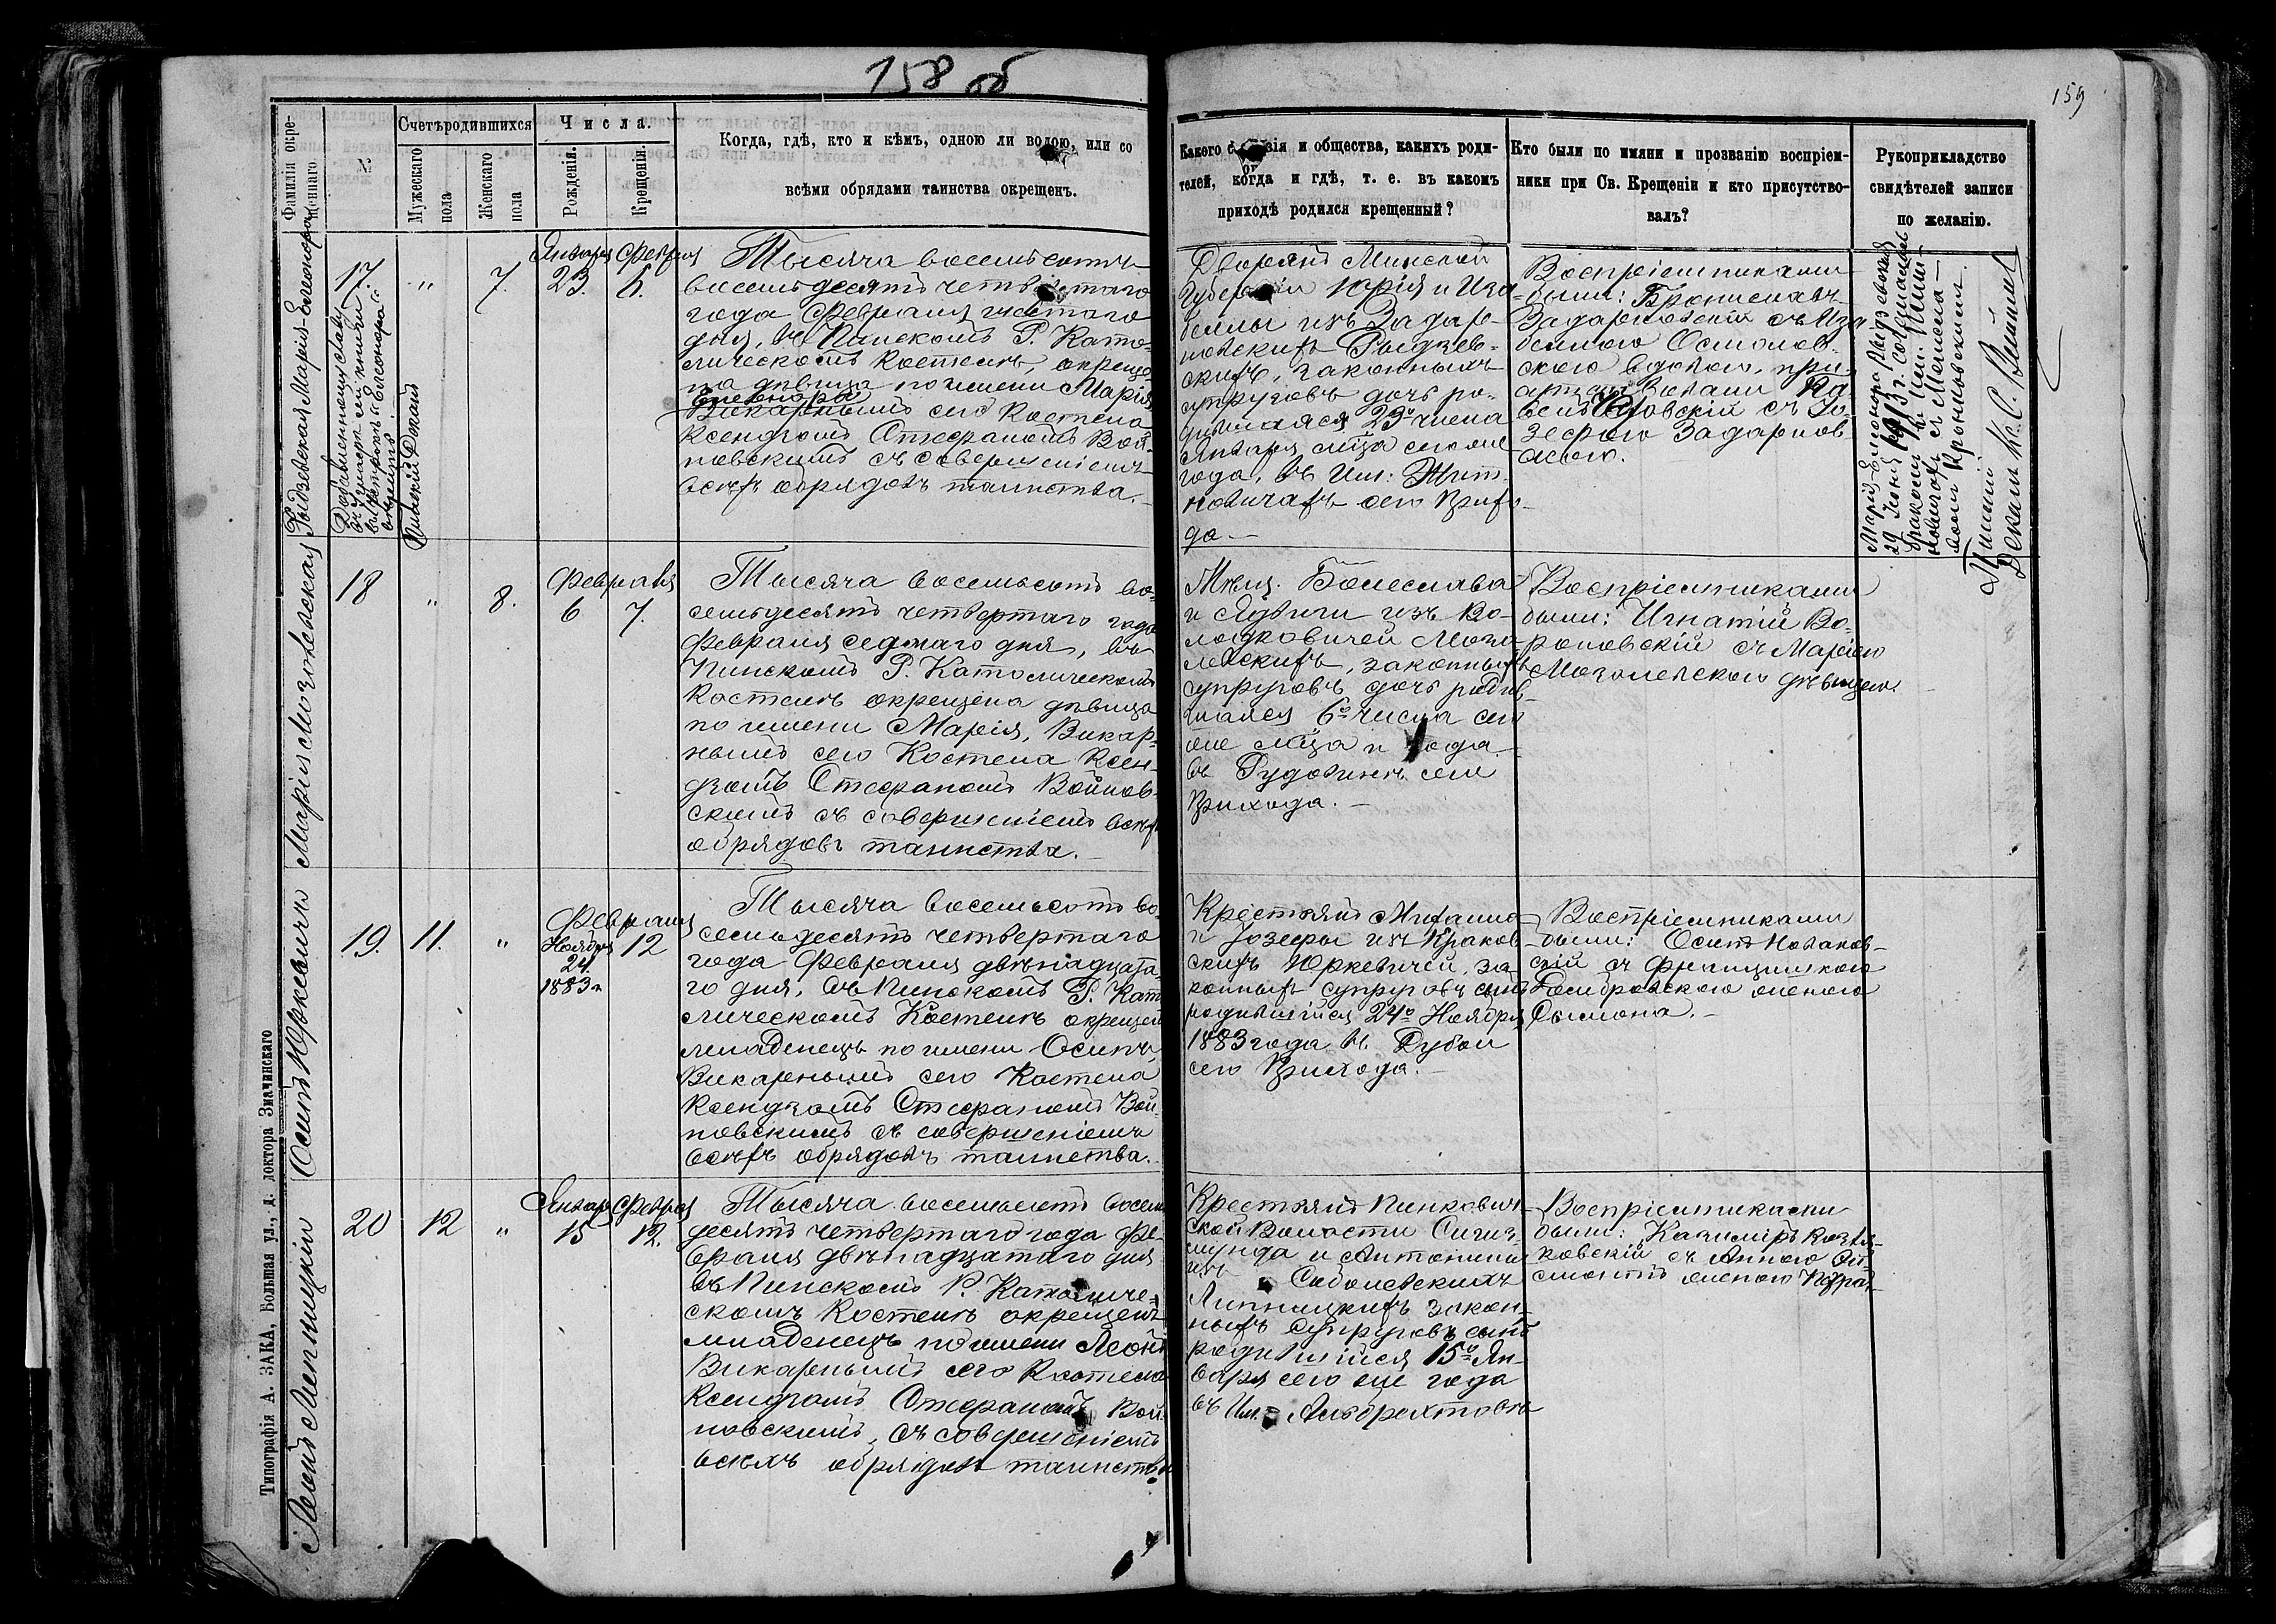 158 об
159
Фамилія окре-
щеннаго
№
Счетъ родившихся
Мужескаго
пола
Женскаго
пола
Числа.
Рожденія.
Крещенія.
Когда, гдѣ, кто и кѣмъ, одною ли водою, или со
всѣми обрядами таинства окрещенъ.
Какого и общества, какихъ роди-
телей, когда и гдѣ, т. е. въ какомъ
приходѣ родился крещенный?
Кто были по имяни и прозванію воспріем-
ники при Св. Крещеніи и кто присутство-
валъ?
Рукоприкладство
свидѣтелей записи
по желанію.
Марія-Елеонора
17.
"
7.
Января
23.
Февраля
6.
Пинскій Деканъ
Тысяча восемьсотъ
восемьдесятъ четвертаго
года Февраля шестаго
дня, въ Пинскомъ Р. Като-
лическомъ Костелѣ, окреще-
на дѣвица по имени Марія
Елеонора
Викарнымъ сего Костела
Ксендзомъ Стефаномъ Вой-
новскимъ съ совершеніемъ
всѣхъ обрядовъ таинства.
Дворянъ Минской
Губерніи Юрія и Иза-
беллы изъ Задар-
новскихъ
скихъ, законныхъ
супруговъ дочь ро-
дившаяся 23о числа
Января мѣсяца сего же
года, въ Им: Жит-
новичахъ сего Прихо-
да.
Воспріемниками
были: Брониславъ
Задарновскій съ Иза-
беллою
скою вдовою, при
Па-
съ Іо-
зефою Задарнов-
скою.
29 Іюня 1913 г.
бракомъ
Крыньовскимъ.
Пинскій
Деканъ Кс.
Марія Моголевская
18
"
8.
Февраля
6
7.
Тысяча восемьсотъ во-
семьдесятъ четвертаго года
Февраля седмаго дня, въ
Пинскомъ Р. Католическомъ
Костелѣ окрещена дѣвица
по имени Марія, Викар-
нымъ сего Костела Ксен-
дзомъ Стефаномъ Войнов-
скимъ съ совершеніемъ всѣхъ
обрядовъ таинства.
Мѣщ. Болеслава
и Ядвиги изъ Во-
лодковичей Мого-
левскихъ, законныхъ
супруговъ дочь родив-
шаяся 6о числа сего
же мѣсяца и года
въ Рудавинѣ сего
Прихода.
Воспріемниками
были: Игнатій Во-
роновскій съ Маріею
Моголевскою дѣвицею.
Осипъ Юркевичъ
19.
11.
"
Февраля
Ноября
24.
1883 г.
12
Тысяча восемьсотъ во-
семьдесятъ четвертаго
года Февраля двѣнадцата-
го дня, въ Пинскомъ Р. Като-
лическомъ Костелѣ окрещенъ
младенецъ по имени Осипъ,
Викарнымъ сего Костела
Ксендзомъ Стефаномъ Вой-
новскимъ съ совершеніемъ
всѣхъ обрядовъ таинства.
Крестьянъ Михаила
и Іозефы изъ Краков-
скихъ Юркевичей, за-
конныхъ супруговъ сынъ
родившійся 24о Ноября
1883 года въ Дубои
сего Прихода.
Воспріемниками
были: Осипъ Новаков-
скій съ Францишкою
Домбровскою женою
Сымона.
Леонъ Липницкій
20
12
"
Январ
15
Февра
12.
Тысяча восемьсотъ восемь-
десятъ четвертаго года Фе-
враля двѣнадцатаго дня
въ Пинскомъ Р. Католиче-
скомъ Костелѣ окрещенъ
младенецъ по имени Леонъ
Викарнымъ сего Костела
Ксендзомъ Стефаномъ Вой-
новскимъ, съ совершеніемъ
всѣхъ обрядовъ таинства
Крестьянъ Пинкович-
ской Волости Сигиз-
мунда и Антонины
изъ Соболевскихъ
Липницкихъ закон-
ныхъ супруговъ сынъ
родившійся 15о Ян-
варя сего же года
въ Им. Альбрехтовѣ
Воспріемниками
были: Казиміръ Козля-
ковскій съ Анною
женою
Типографія А. ЗАКА, Большая ул., д. доктора Значинскаго